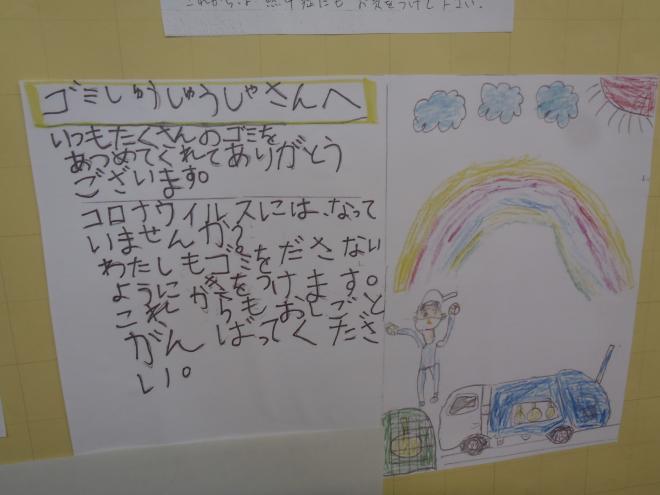 これからは熱中症にも お気をつけ下さい.
ゴミしゅうしゅうしゃさんへ
いつもたくさんのゴミを
あつめてくれてありがとう
ございます。
コロナウイルスには、なって
いませんか?
わたしもゴミをださない
ようにきをつけます。
これからもおしごと
がんばってくださ
い。